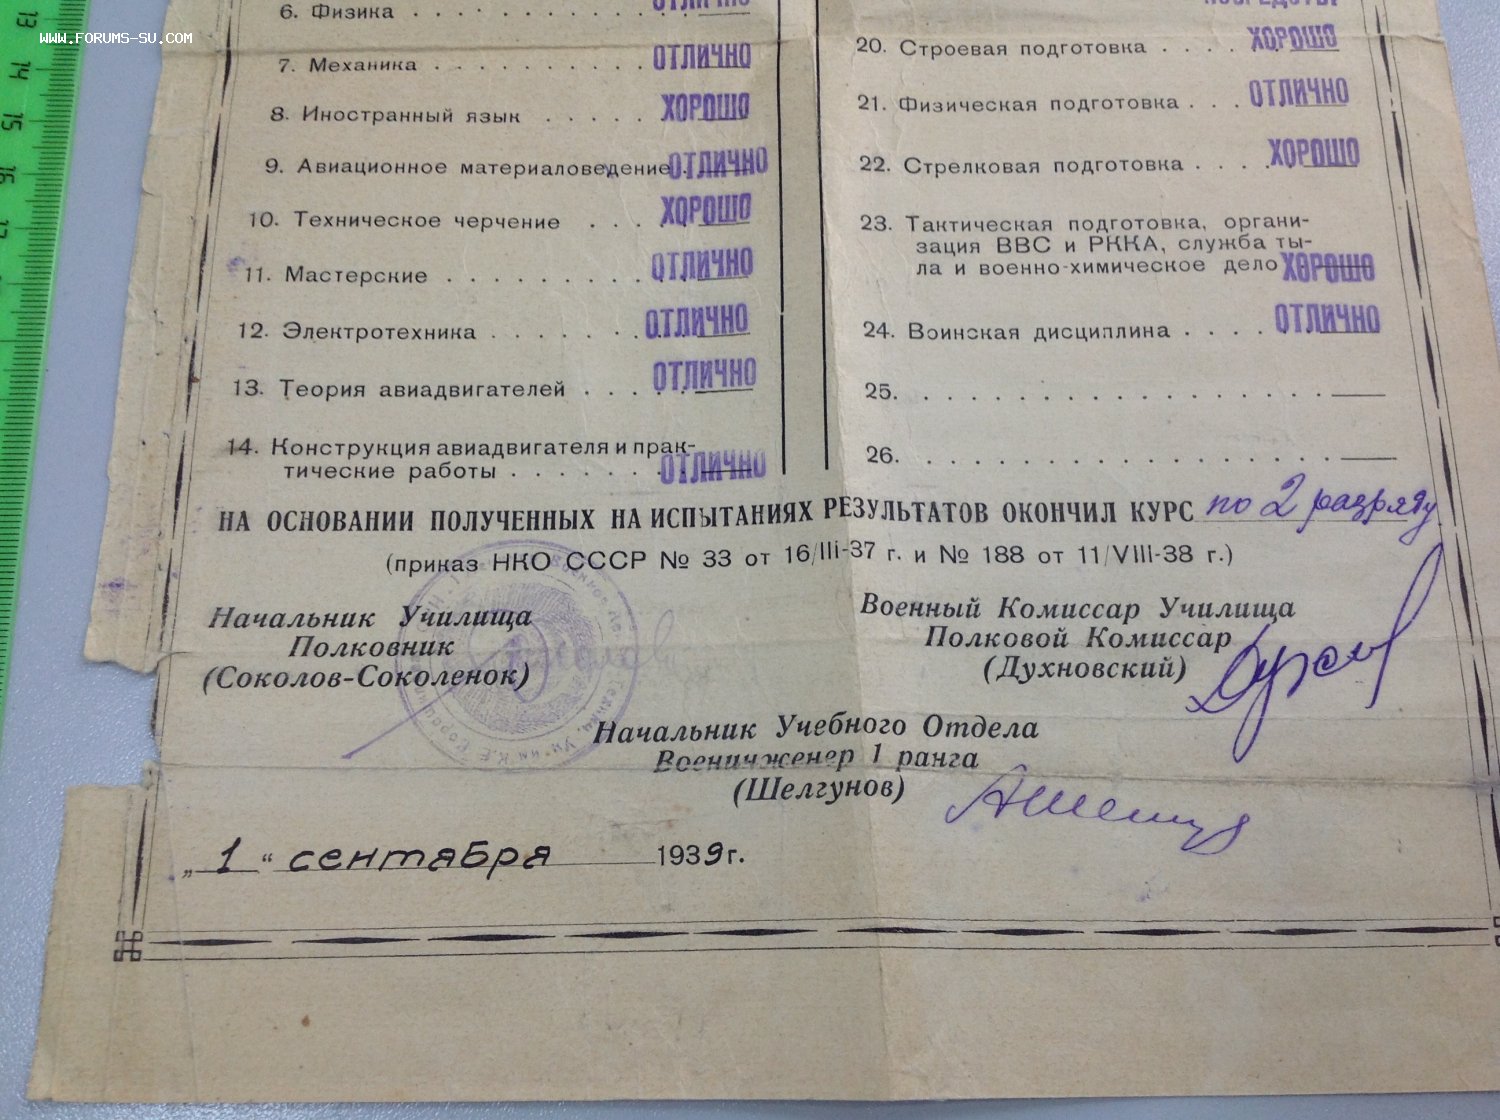 13
14
15
16
WWW.FORUMS-SU.COM
6. Физика . . . . . . . . . . . . ОТЛИЧНО
7. Механика . . . . . . . . . . ОТЛИЧНО
8. Иностранный язык . . . . . ХОРОШО
9. Авиационное материаловедение ОТЛИЧНО
10. Техническое черчение . . . . ХОРОШО
11. Мастерские . . . . . . . . . ОТЛИЧНО
12. Электротехника . . . . . . . ОТЛИЧНО
13. Теория авиадвигателей . . . . ОТЛИЧНО
14. Конструкция авиадвигателя и прак-
тические работы . . . . . . . ОТЛИЧНО
20. Строевая подготовка . . . . ХОРОШО
21. Физическая подготовка . . . ОТЛИЧНО
22. Стрелковая подготовка . . . . ХОРОШО
23. Тактическая подготовка, органи-
зация ВВС и РККА, служба ты-
ла и военно-химическое дело ХОРОШО
24. Воинская дисциплина . . . . ОТЛИЧНО
25. . . . . . . . . . . . . . . . . .
26. . . . . . . . . . . . . . . . . .
НА ОСНОВАНИИ ПОЛУЧЕННЫХ НА ИСПЫТАНИЯХ РЕЗУЛЬТАТОВ ОКОНЧИЛ КУРС по 2 разряду
(приказ НКО СССР № 33 от 16/III-37 г. и № 188 от 11/VIII-38 г.)
Начальник Училища
Полковник
(Соколов-Соколенок)
Военный Комиссар Училища
Полковой Комиссар
(Духновский)
Начальник Учебного Отдела
Военинженер 1 ранга
(Шелгунов)
„ 1 “ сентября 1939 г.